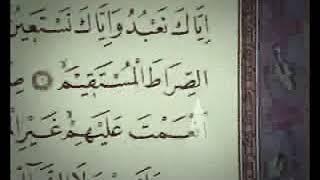 إِيَّاكَ نَعْبُدُ وَإِيَّاكَ نَسْتَعِينُ
الصِّرَاطَ الْمُسْتَقِيمَ
أَنْعَمْتَ عَلَيْهِمْ غَيْرِ